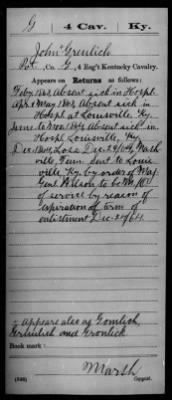 G | 4 Cav. | Ky.
John Greulich
Pvt., Co. G, 4 Reg't Kentucky Cavalry.
Appears on Returns as follows:
Feby 1863, Absent sick in Hospt.
Apr & May 1863 Absent sick in
Hospt at Louisville Ky.
June to Nov 1864 Absent sick in
Hospt Louisville, Ky.
Dec 1864, Loss Dec. 24/64, Nash
ville, Tenn. sent to Louis
ville Ky. by order of Maj.
Genl Wilson to be M. O.
of service by reason of
expiration of term of
enlistment Dec. 24/64.
Appears also as Gomlich,
Greinlich and Gronlick
Book mark:
Marsh
(546) Copyist.